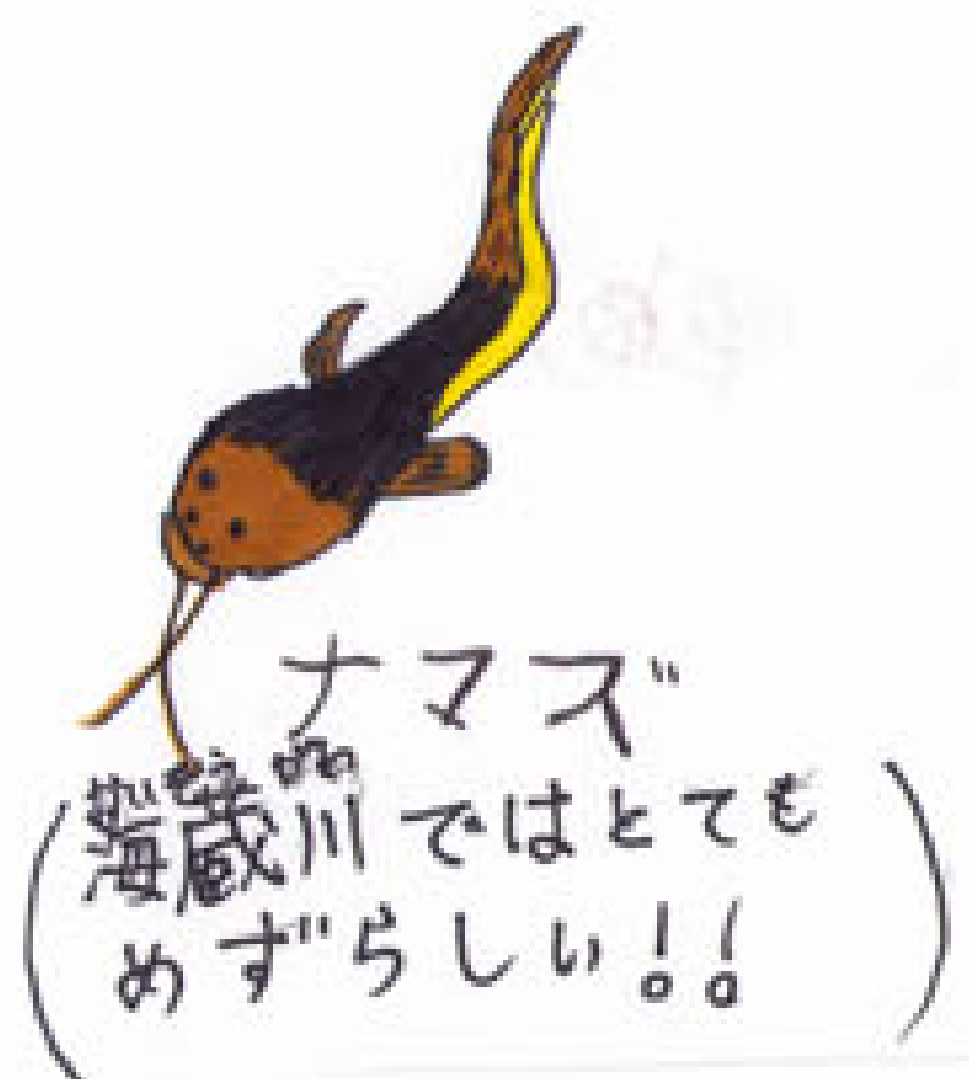 ナマズ
海蔵川ではとても
めずらしい!!